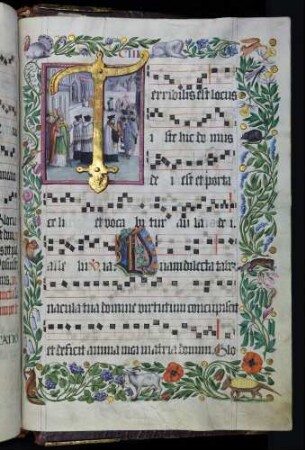 CIII
Terribilis est locus
iste hic domus
dei est et porta
celi et vocabitur aula dei.
Quam dilecta taber
nacula tua domine virtutum concupiscit
et deficit anima mea in atria domini. Glo